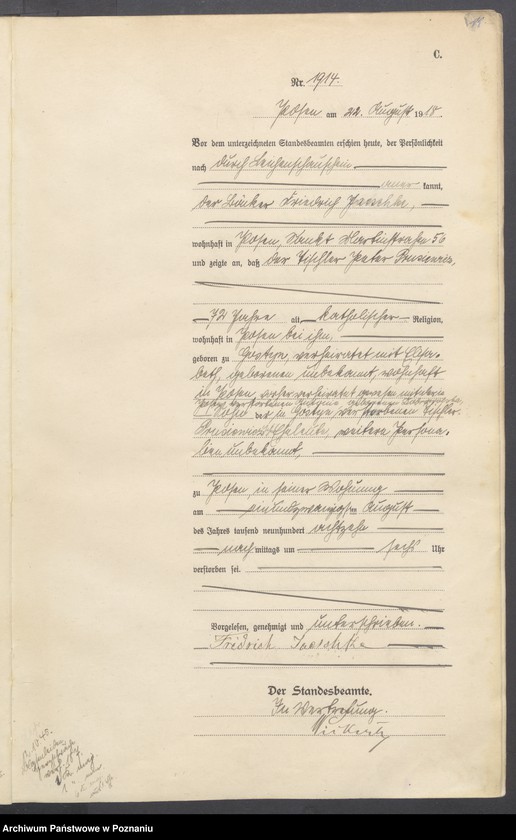 C.
Nr. 1914.
Posen am 22. August 1918.
Vor dem unterzeichneten Standesbeamten erschien heute, der Persönlichkeit
nach durch Leichenschauschein
aner kannt,
der Bäcker Friedrich
wohnhaft in Posen, Sankt Martinstraße 56
und zeigte an, daß der Tischler Peter
72 Jahre alt, katholischer Religion,
wohnhaft in Posen bei ihm,
geboren zu Gostyn, verheiratet mit Elisa-
beth, geborenen unbekannt, wohnhaft
in Posen, vorher verheiratet gewesen mit der in
Posen verstorbenen geborenen
Sohn der in Gostyn verstorbenen Tischler
Eheleute, weitere Persona-
lien unbekannt,
zu Posen, in seiner Wohnung
am einundzwanzigsten August
des Jahres tausend neunhundert achtzehn
nach mittags um sechs Uhr
verstorben sei.
Vorgelesen, genehmigt und unterschrieben.
Fridrich
Der Standesbeamte.
In Vertretung.
Archiwum Państwowe w Poznaniu